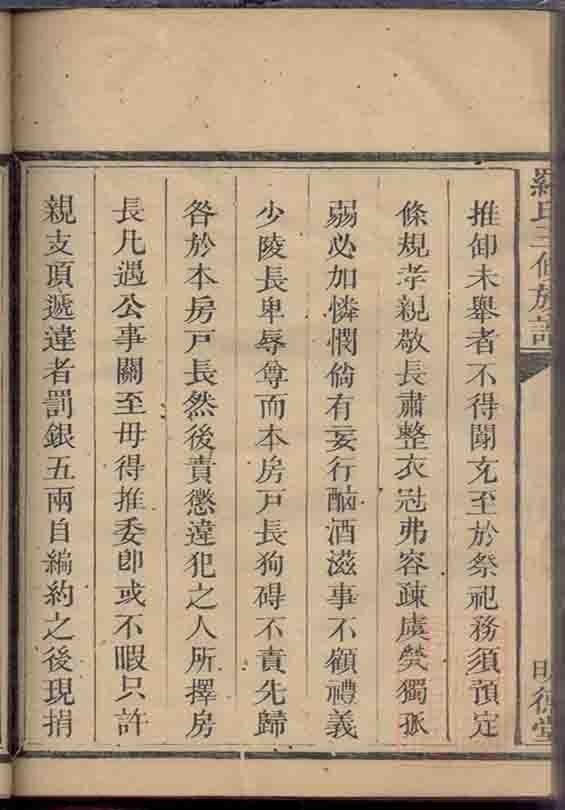 羅氏三修族譜
明德堂
推卸未舉者不得闖充至於祭祀務須預定
條規孝親敬長肅整衣冠弗容疎虞煢獨孤
弱必加憐憫倘有妄行酗酒滋事不顧禮義
少陵長卑辱尊而本房戶長狥碍不責先歸
咎於本房戶長然後責懲違犯之人所擇房
長凡遇公事關至毋得推委卽或不暇只許
親支項遞違者罰銀五兩自編約之後現捐